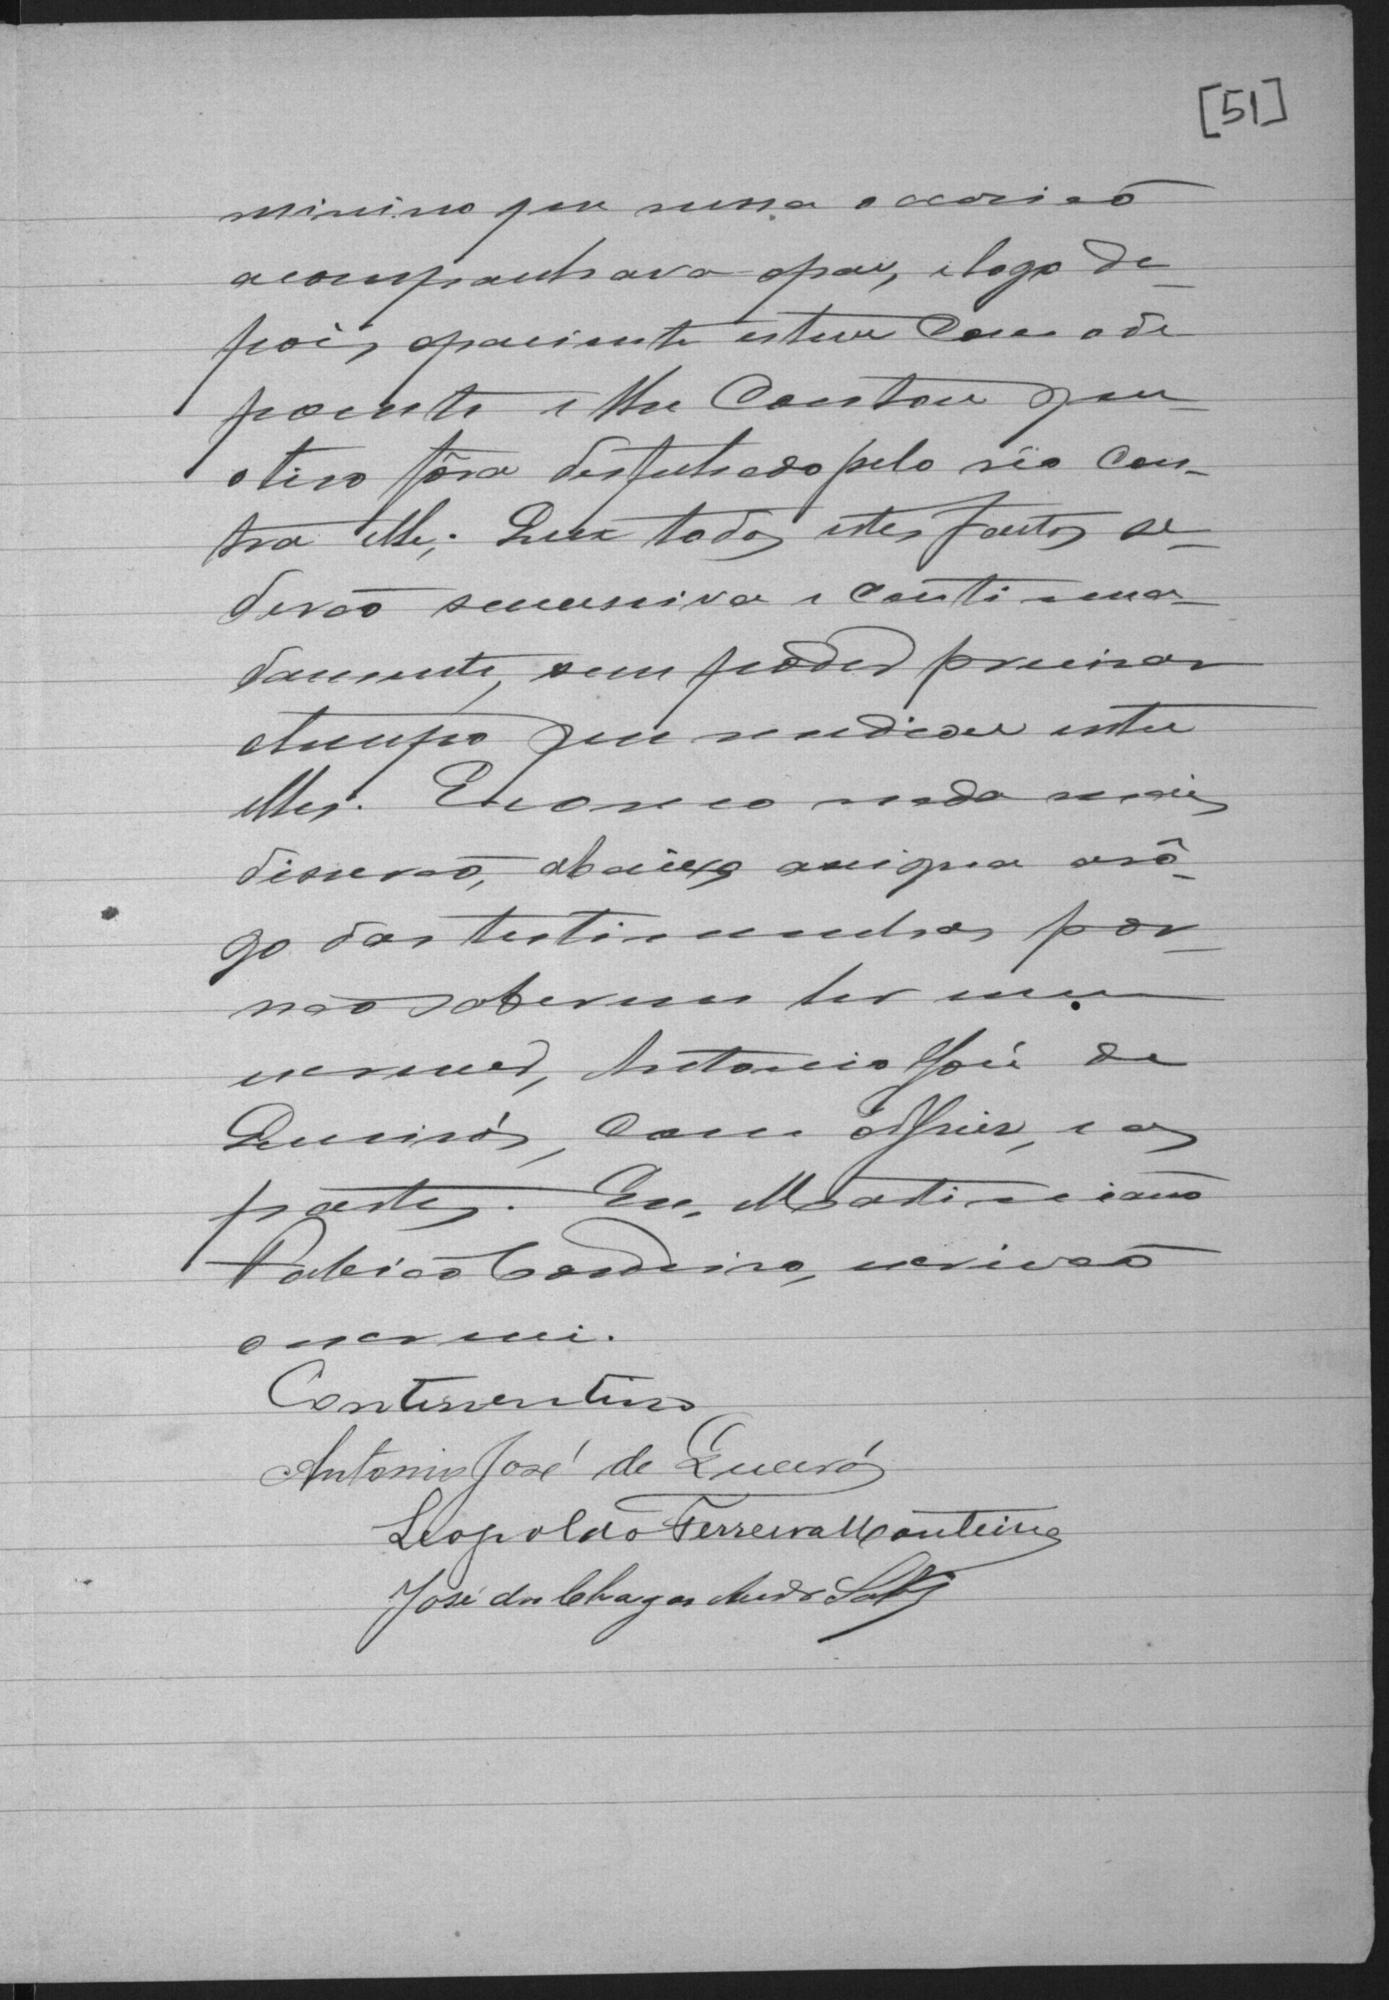 [51]
minino que nessa occasiaõ
acompanhava opai, e logo de-
pois, opaciente esteve com o de
poente e lhe contou que
o tiro fôra desfechado pelo réo con-
tra elle; Que todos estes factos se-
deraõ successiva e continua-
damente, sem poder precisar
otempo que mediou entre
elles. E como nada mais
disseraõ, abaixo assigna arô-
go das testimunhas por
naõ saberem ler nem
escrever, Antonio José de
Queirós, com o Juiz, e as
partes. Eu, Martiniano
Cordeiro, escrivaõ
o escrevi.
Continentino
Antonio José de Queirós
Leopoldo Ferreira Monteiro
José das Chagas Andr